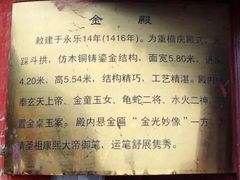 金 殿
殿建于永乐14年(1416年)。为重檐庑殿式,
踩斗拱,仿木铜铸鎏金结构,面宽5.80米,进
4.20米,高5.54米,结构精巧,工艺精湛。殿内
奉玄天上帝、金童玉女、龟蛇二将、水火二神
置金桌玉案。殿内悬金匾“金光妙像”一方
清圣祖康熙大帝御笔,运笔舒展隽秀。